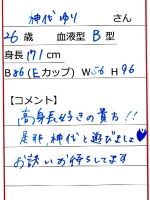 神代ゆり さん
26 歳 血液型 B 型
身長 171 cm
B 86 (E カップ) W 56 H 96
【コメント】
高身長好きの貴方!!
是非神代と遊びましょ♥
お誘いお待ちしてます